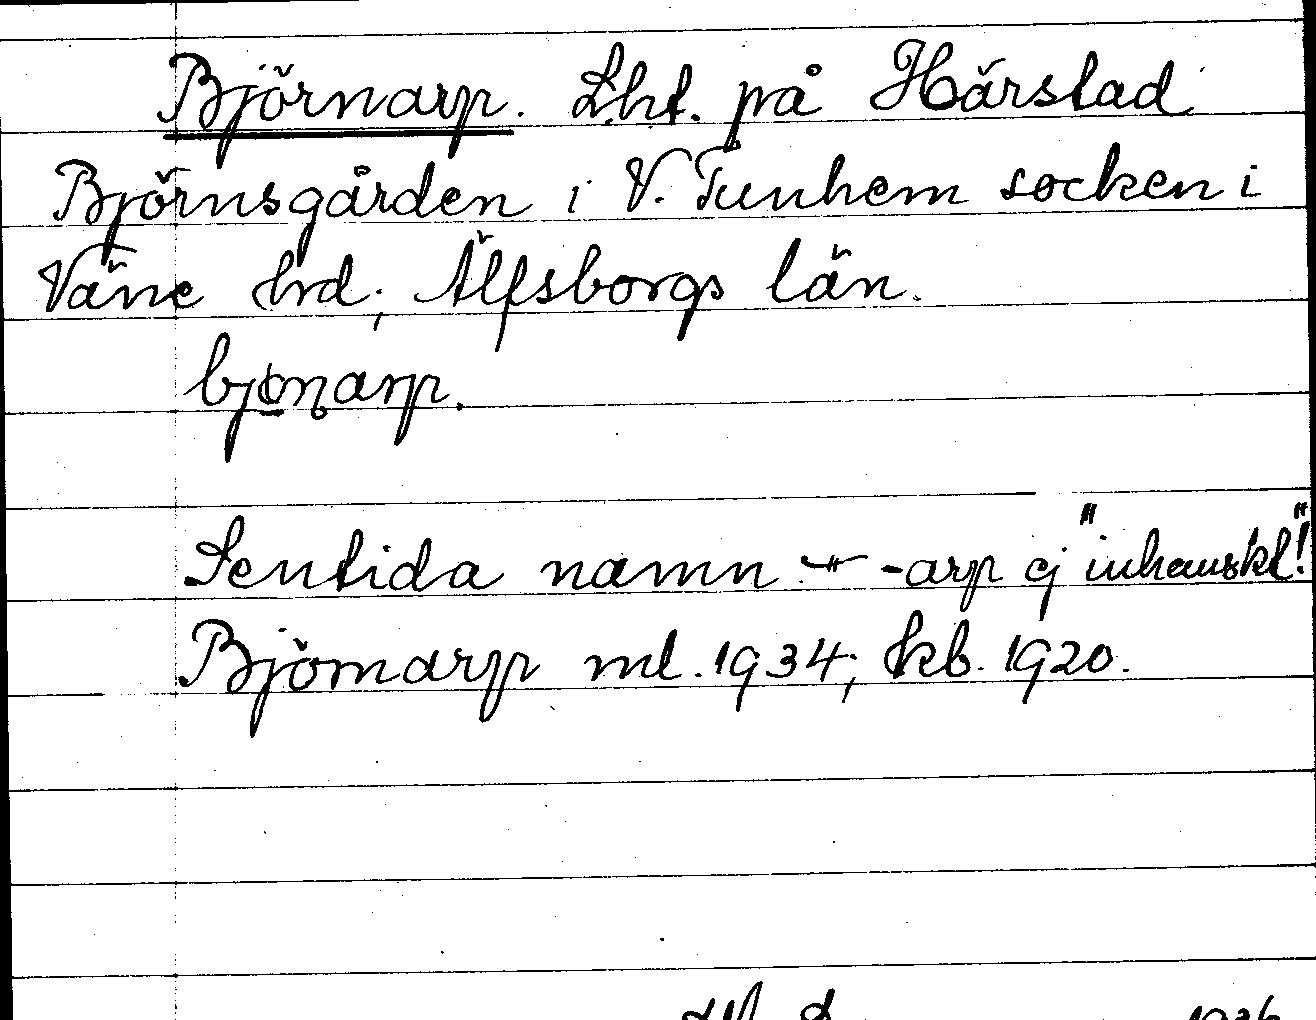 Björnarp. Lht. på Härstad
Björnsgården i V. Tunhem socken i
Väne hrd; Älfsborgs län.
bjɷṇarp.
Sentida namn -arp ej "inhemskt!"
Björnarp ml. 1934; kb. 1920.
1936